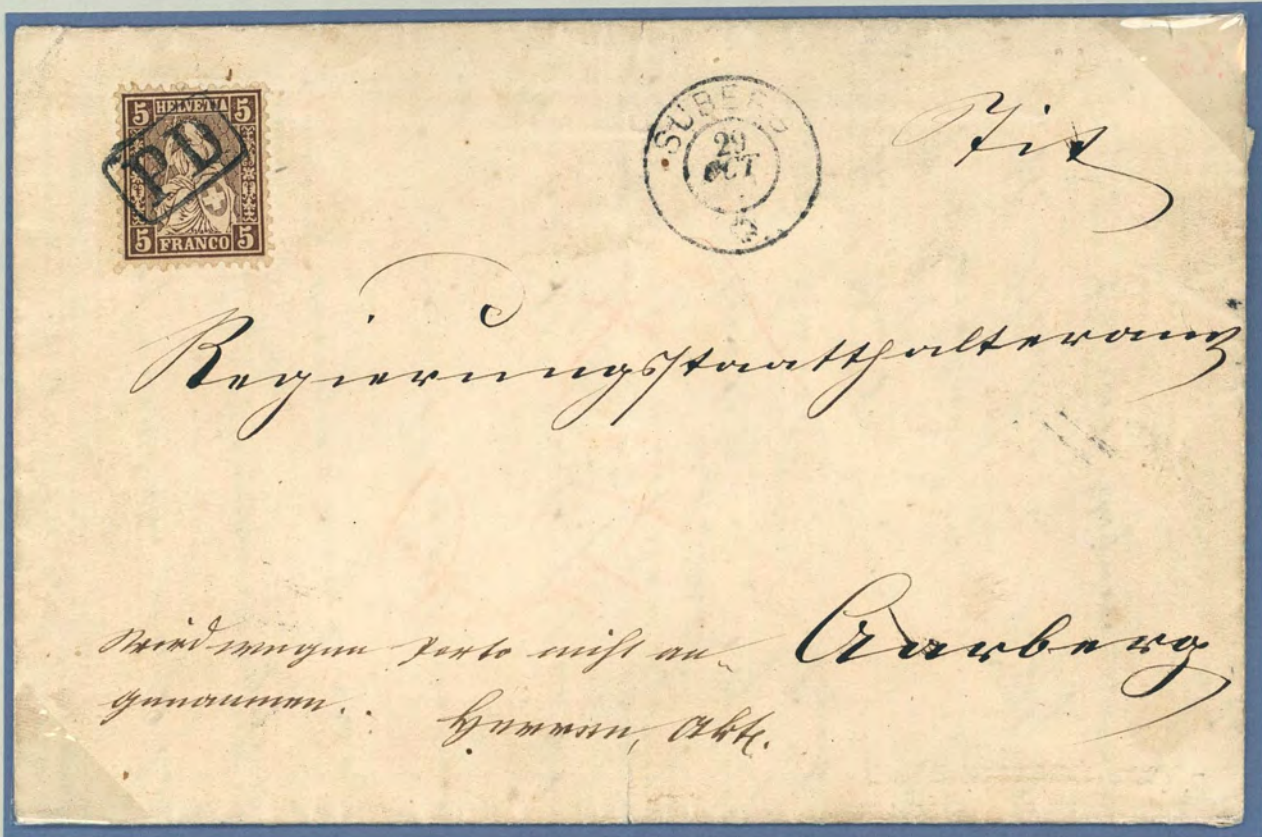 5 HELVETIA 5
PD
5 FRANCO 5
SUBERG
29
OCT
Tit
Regierungsstaatthalteramt
Aarberg
Wird wegen Porto nicht an-
genommen.